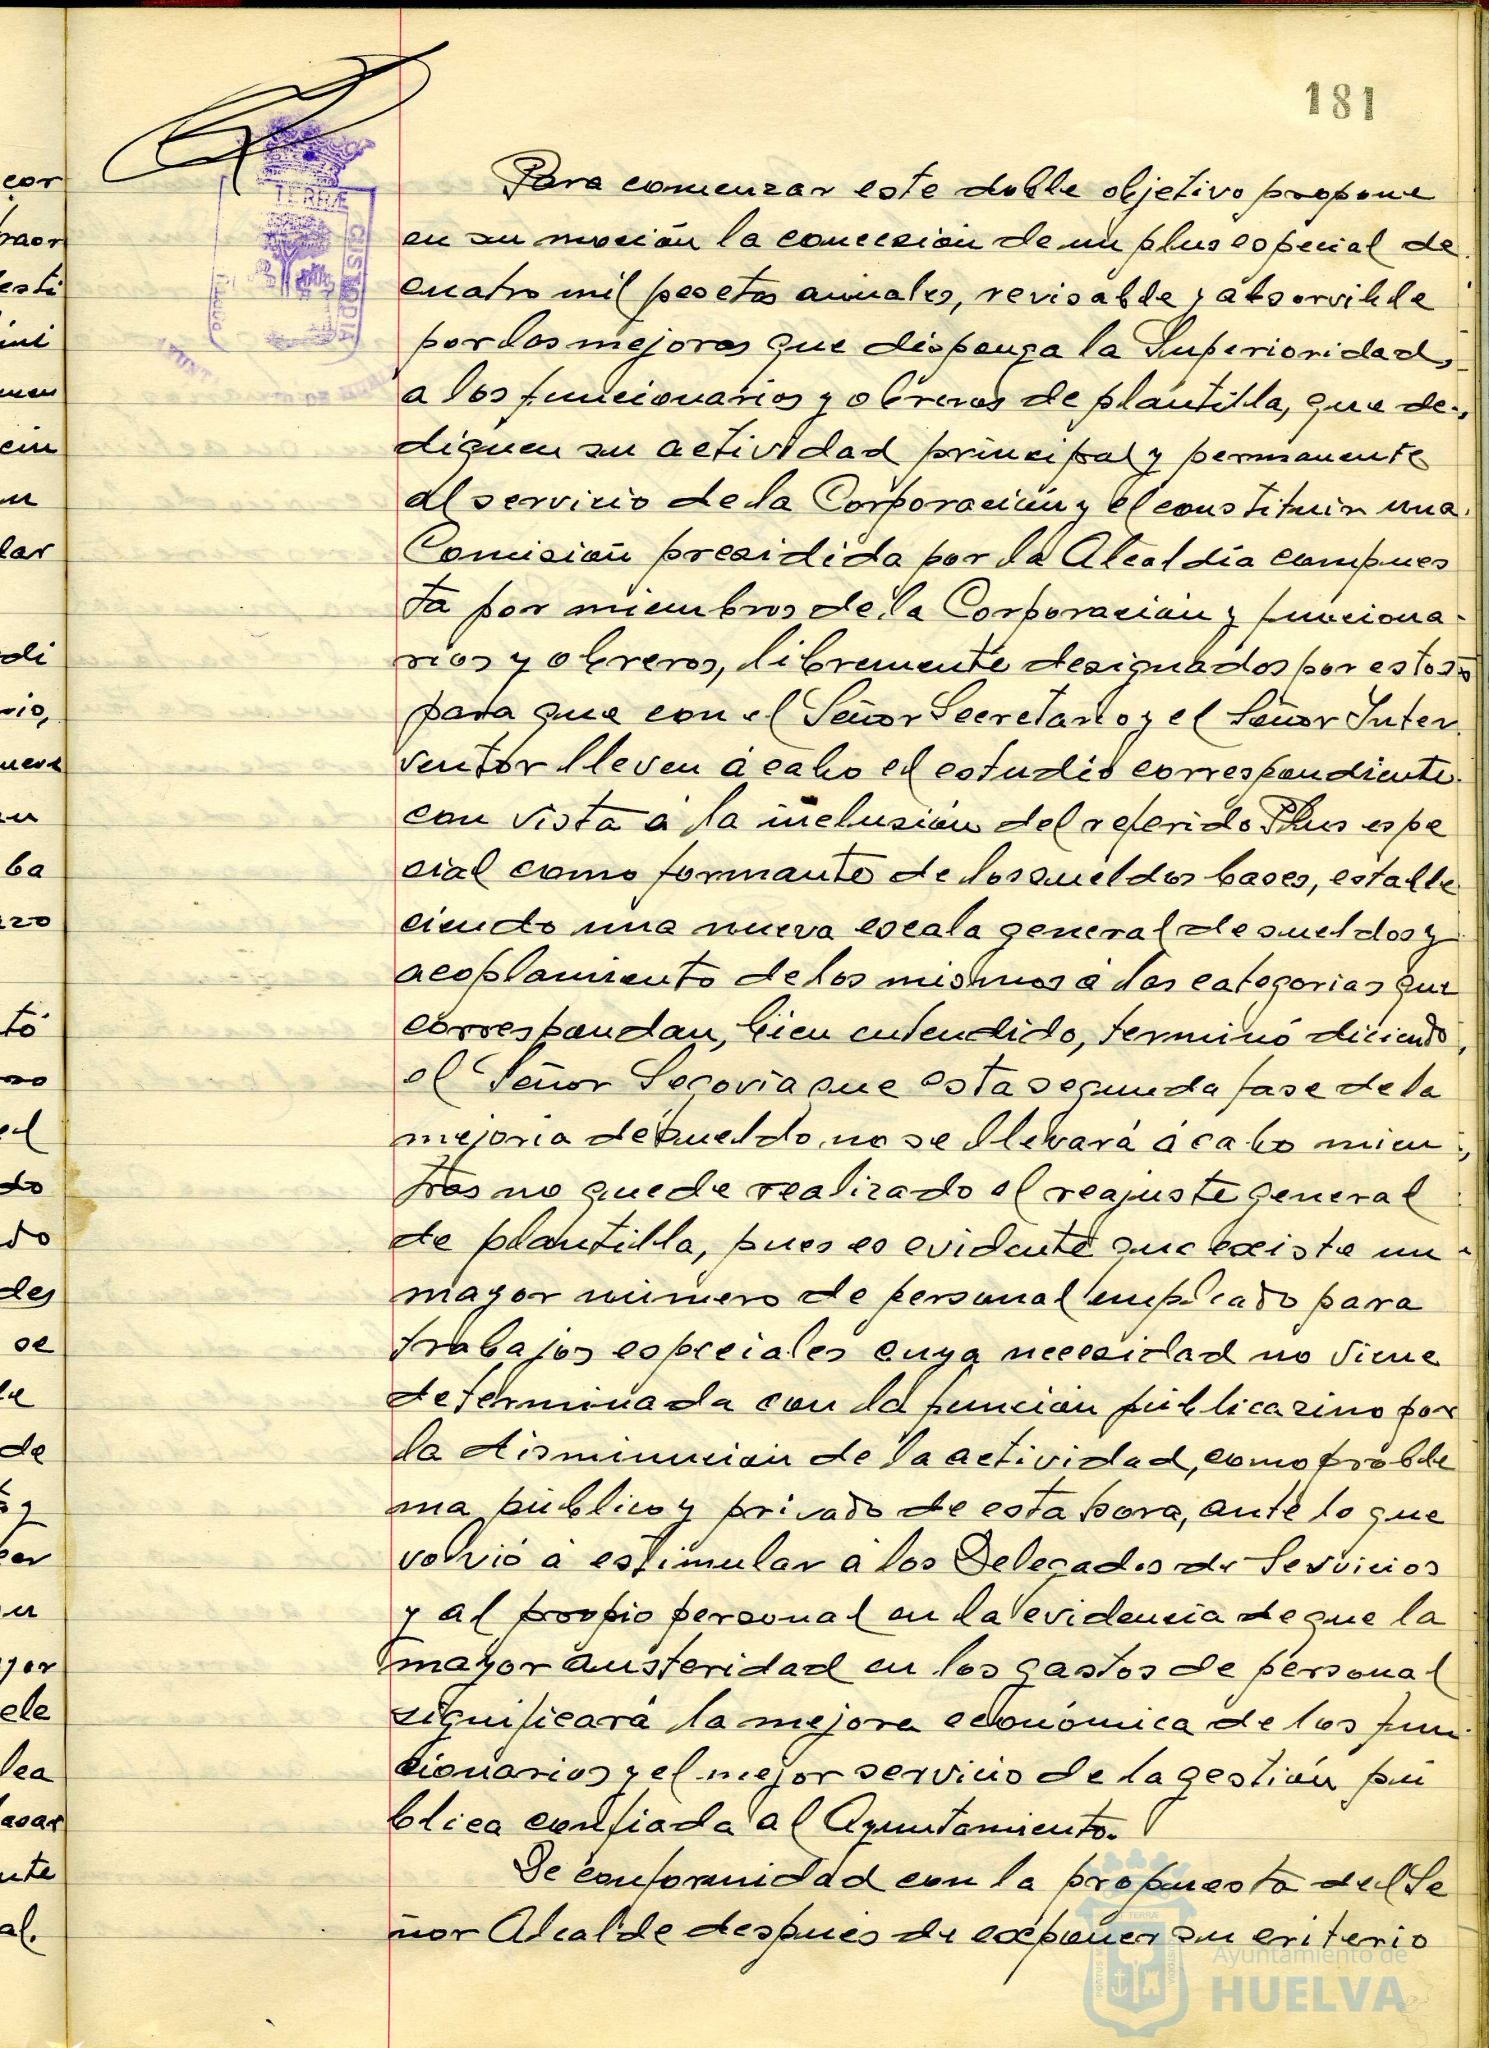 181
Para comenzar este doble objetivo propone
en su moción la concesión de un plus especial de
cuatro mil pesetas anuales, revisable y absorvible
por las mejoras que disponga la Superioridad,
a los funcionarios y obreros de plantilla, que de-
diquen su actividad principal y permanente
al servicio de la Corporación y el constituir una
Comisión presidida por la Alcaldía compues
ta por miembros de la Corporación y funciona-
rios y obreros, libremente designados por estos
para que con el Señor Secretario y el Señor Inter
ventor lleven á cabo el estudio correspondiente
con vista á la inclusión del referido Plus espe
cial como formante de los sueldos bases, estable
ciendo una nueva escala general de sueldos y
acoplamiento de los mismos á las categorias que
correspondan, bien entendido, terminó diciendo,
el Señor Segovia que esta segunda fase de la
mejoria de sueldo no se llevará á cabo mien
tras no quede realizado el reajuste general
de plantilla, pues es evidente que existe un
mayor número de personal empleado para
trabajos especiales cuya necesidad no viene
determinada con la función pública sino por
la disminución de la actividad, como proble
ma público y privado de esta hora, ante lo que
volvió á estimular á los Delegados de Servicios
y al propio personal en la evidencia de que la
mayor austeridad en los gastos de personal
significará la mejora económica de los fun
cionarios y el mejor servicio de la gestión pú
blica confiada al Ayuntamiento.
De conformidad con la propuesta del Se
ñor Alcalde después de exponer su criterio
TERRÆ
CUSTODIA
Ayuntamiento de
HUELVA